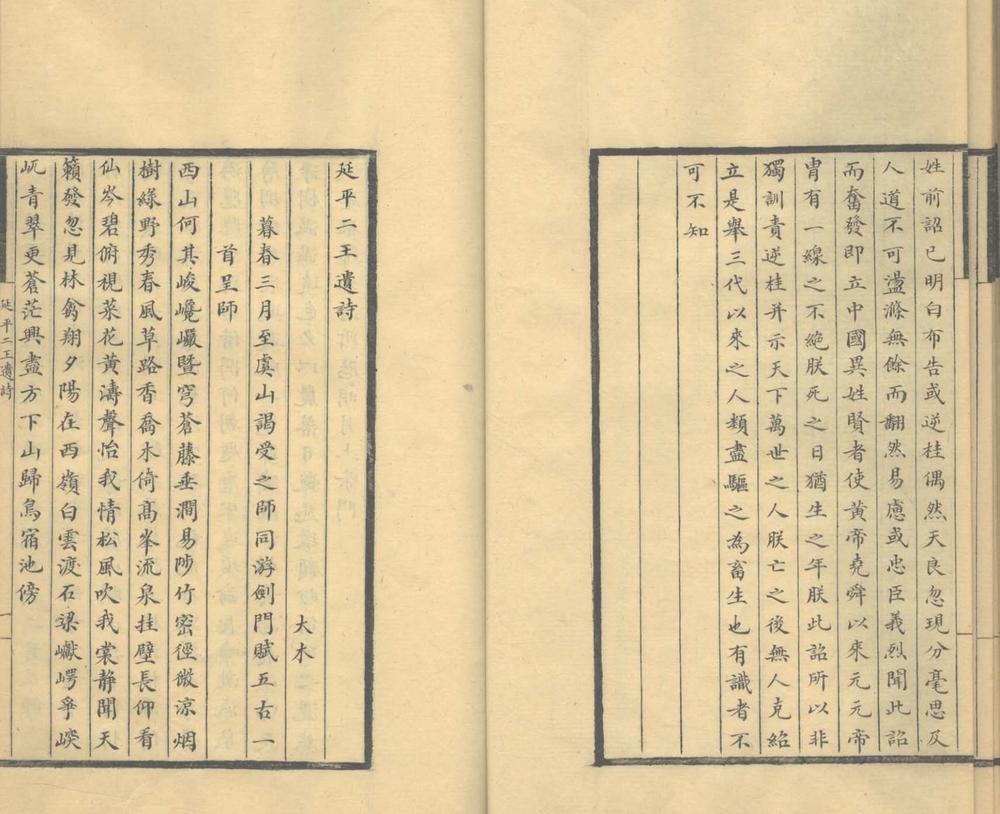 姓前詔已明白布告或逆桂偶然天良忽現分毫思及
人道不可盪滌無餘而翻然易慮或忠臣義烈聞此詔
而奮發即立中國異姓賢者使黃帝堯舜以來元元帝
胄有一線之不絕朕死之日猶生之年朕此詔所以非
獨訓責逆桂并示天下萬世之人朕亡之後無人克紹
立是舉三代以來之人類盡驅之為畜生也有識者不
可不知
延平二王遺詩
大木
暮春三月至虞山謁受之師同游劍門賦五古一
首呈師
西山何其峻巉巖暨穹蒼藤垂澗易陟竹密徑微涼烟
樹綠野秀春風草路香喬木倚高峯流泉挂壁長仰看
仙岑碧俯視菜花黃濤聲怡我情松風吹我裳靜聞天
籟發忽見林禽翔夕陽在西嶺白雲渡石梁巘崿爭崚
屼青翠更蒼茫興盡方下山歸鳥宿池傍
延平二王遺詩